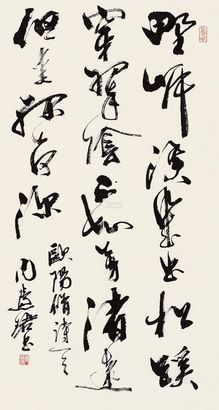 野岸溪幾曲松蹊
穿翠陰不知芳渚遠
但愛綠荷深
歐陽脩詩
周慧珺